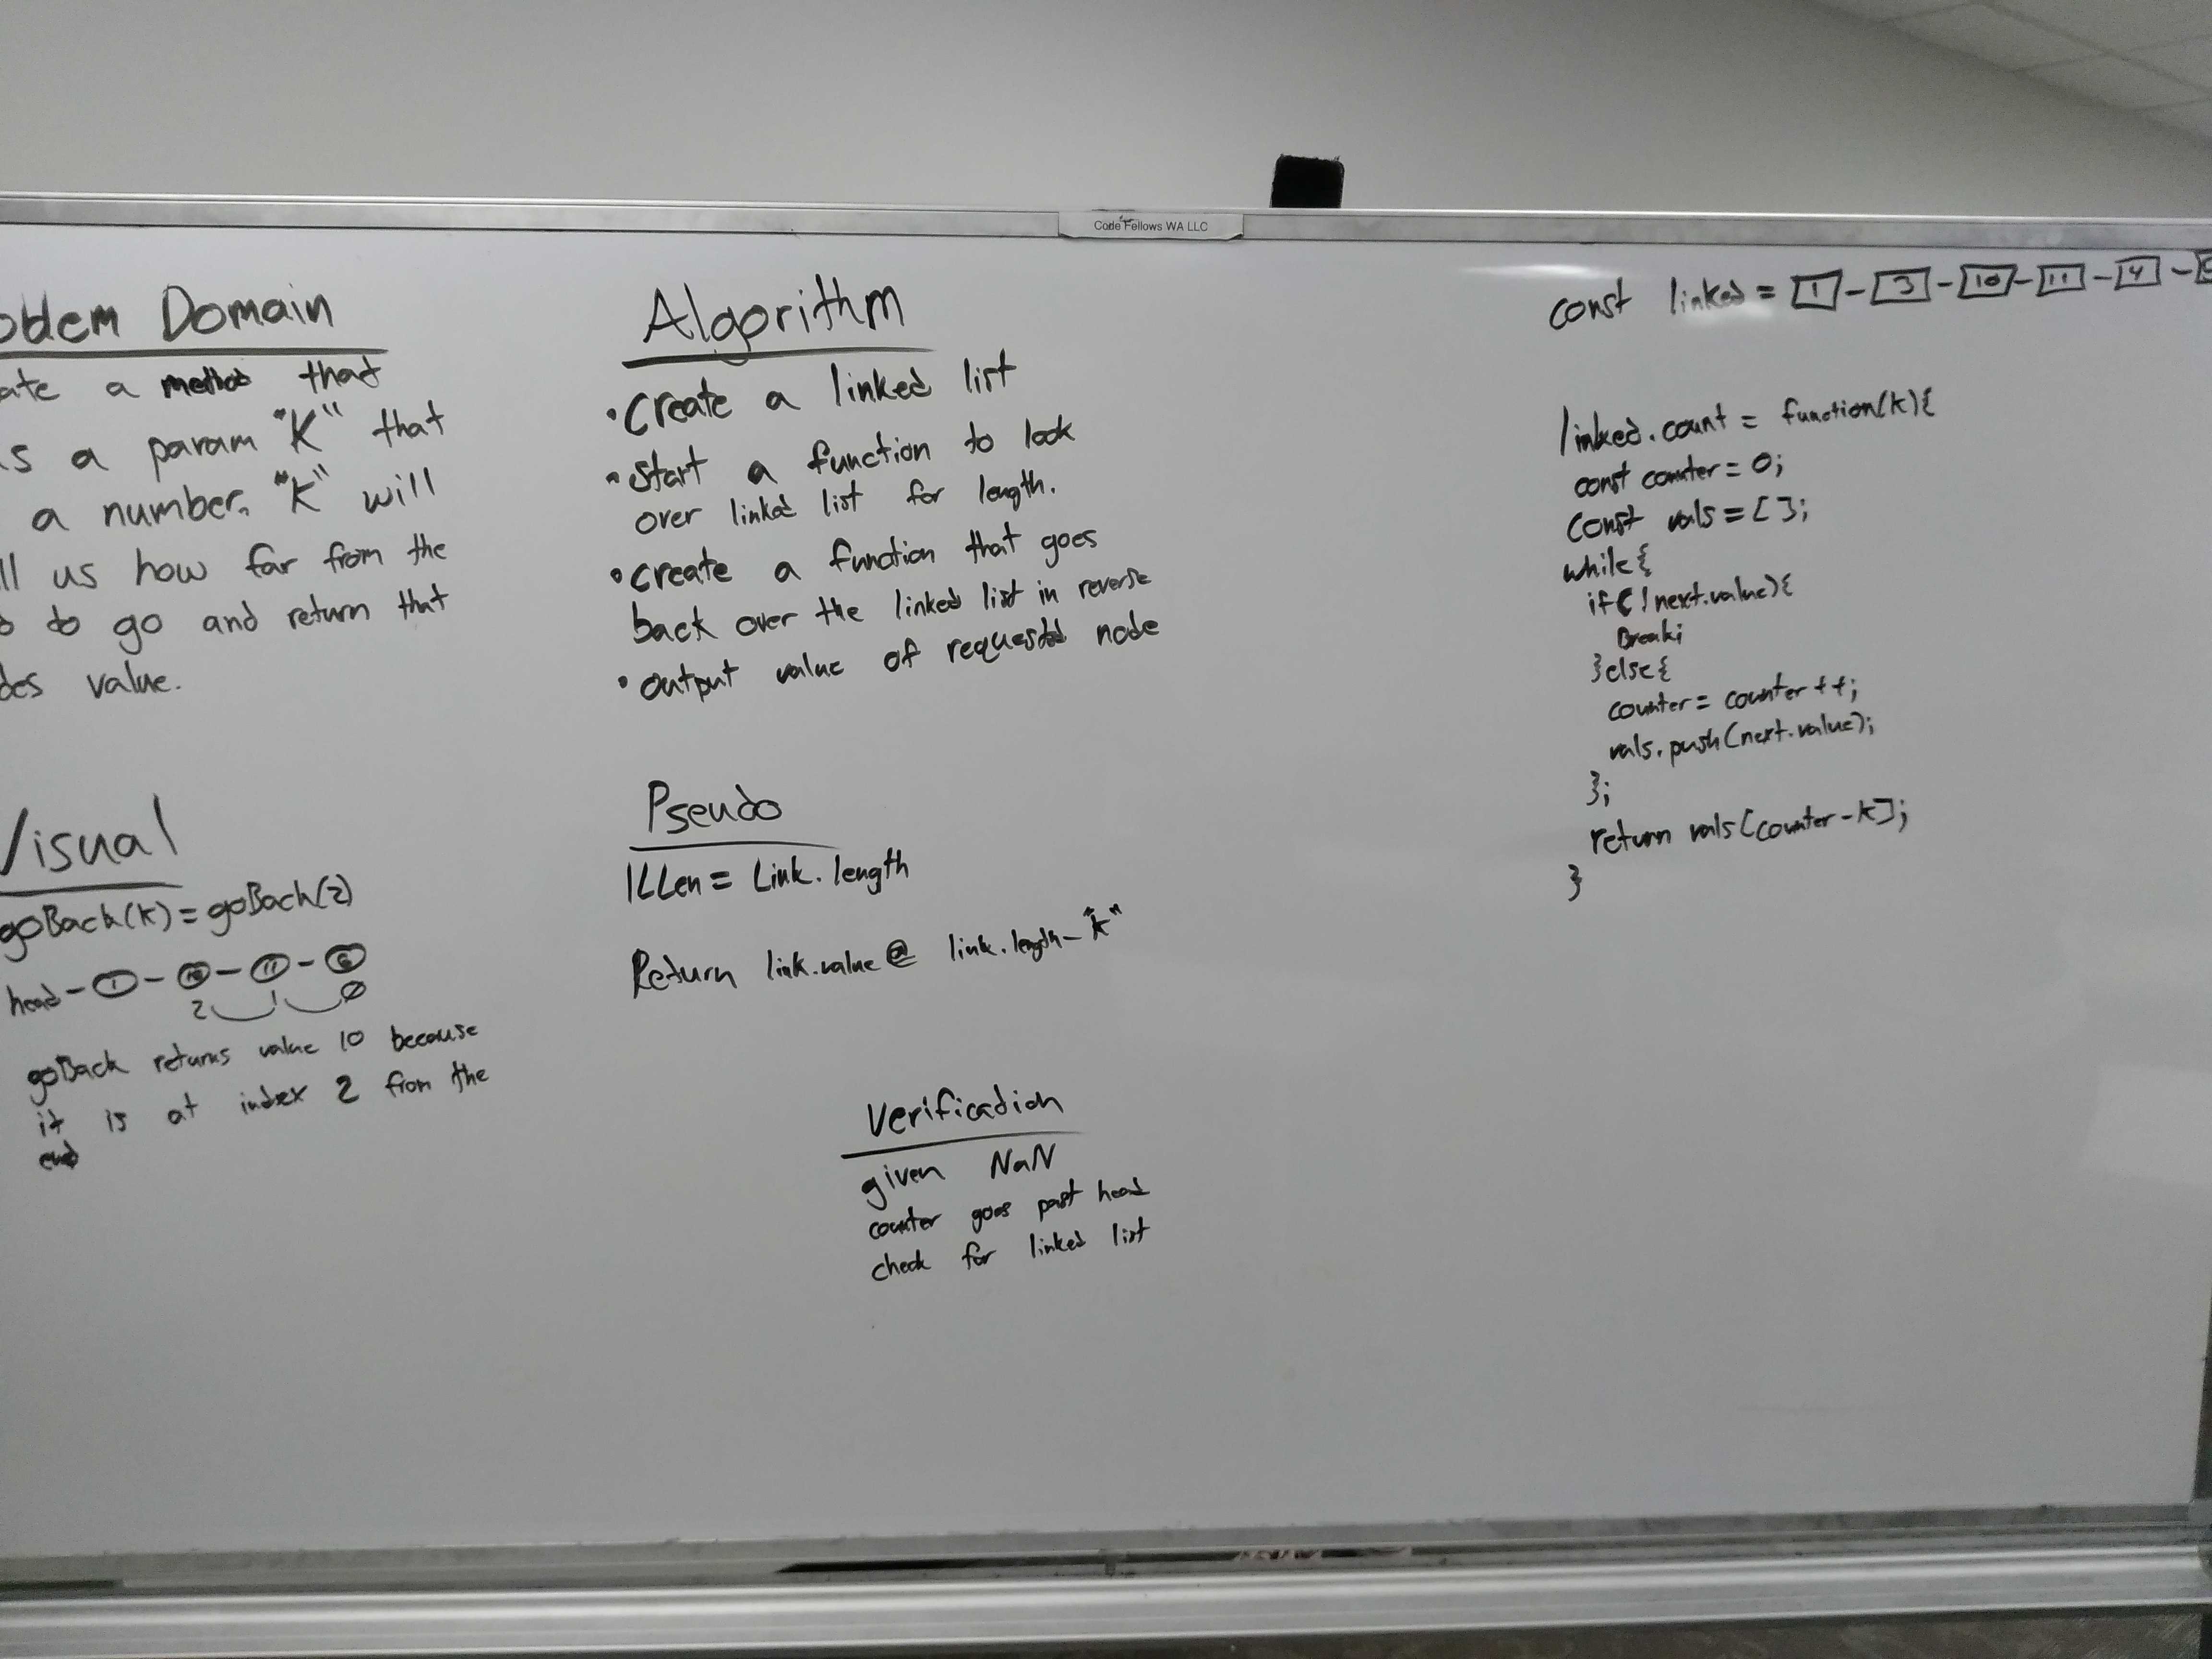 Code Fellows WA LLC
oblem Domain
ate a method that
s a param "K" that
a number. "K" will
ll us how far from the
to go and return that
des value.
Visual
goBack(k) = goBack(2)
head - 1 - 10 - 11 - 6
2 1 0
goBack returns value 10 because
it is at index 2 from the
end
Algorithm
• Create a linked list
• Start a function to look
over linked list for length.
• Create a function that goes
back over the linked list in reverse
• output value of requested node
Pseudo
lLLen = Link.length
Return link.value @ link.length - "k"
Verification
given NaN
counter goes past head
check for linked list
const linked = 1 - 3 - 10 - 11 - 4 -
linked.count = function(k){
const counter = 0;
const vals = [];
while{
if(!next.value){
Break;
}else{
counter = counter++;
vals.push(next.value);
};
return vals[counter-k];
}